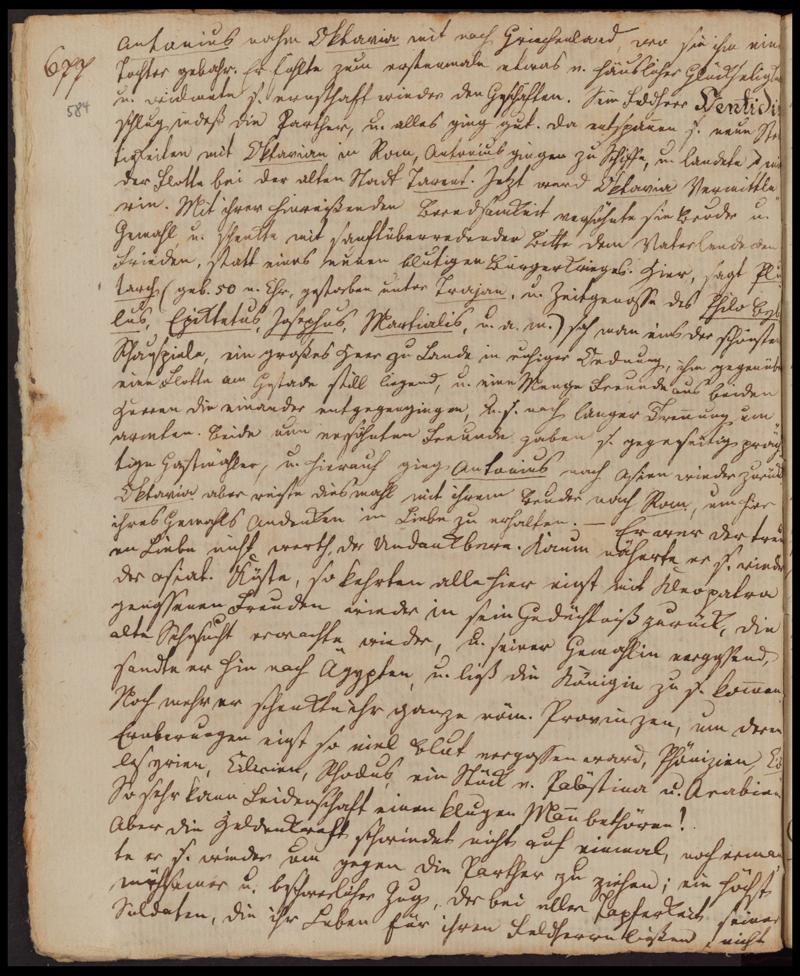 677
584
Antonius nahm Oktavia mit nach Griechenland, wo sie ihm eine
Tochter gebahr. Er fühlte zum erstenmale etwas v. häuslicher Glückseligke
u. widmete s. ernsthaft wieder den Geschäften. Sein Feldherr Ventidi
schlug indeß die Parther, u. alles ging gut. Da entspannen s. neue Stre
tigkeiten mit Oktavian in Rom, Antonius gingen zu Schiffe, u. landete mit
der Flotte bei der alten Stadt Tarent. Jetzt ward Oktavia Vermittle
rin. Mit ihrer hinreißenden Beredsamkeit versöhnte sie Bruder u.
Gemahl, u. schenkte mit sanftüberredender Bitte dem Vaterlande den
Frieden, statt eines neuen blutigen Bürgerkrieges. Hier, sagt Plu
tarch (geb. 50 n. Chr, gestorben unter Trajan, u. Zeitgenosse des Philo Byb
lus, Epiktetus, Josephus, Martialis, u. a. m.) sah man eins der schönsten
Schauspiele, ein großes Heer zu Lande in ruhiger Ordnung, ihm gegenübe
eine Flotte am Gestade still liegend, u. eine Menge Freunde aus beiden
Heeren die einander entgegengingen, u. s. nach langer Trennung um
armten. Beide nun versöhnten Freunde gaben s. gegenseitig präch
tige Gastmähler, u. hierauf ging Antonius nach Asien wieder zurück
Oktavia aber reiste diesmahl mit ihrem Bruder nach Rom, um hier
ihres Gemahls Andenken in Liebe zu erhalten. — Er war der treu
en Liebe nicht werth, der Undankbare. Kaum näherte er s. wieder
der asiat. Küste, so kehrten alle hier einst mit Kleopatra
genossenen Freuden wieder in sein Gedächtniß zurück, die
alte Sehnsucht erwachte wieder, u. seiner Gemahlin vergessend,
sandte er hin nach Ägypten, u. ließ die Königin zu s. kommen
Noch mehr er schenkte ihr ganze röm. Provinzen, um deren
Eroberungen einst so viel Blut vergossen ward, Phönizien, Cö
lesyrien, Cilicien, Rhodus, ein Stück v. Palästina u. Arabien
So sehr kann Leidenschaft einen klugen Mann bethören!
Aber die Heldenkraft schwindet nicht auf einmal, noch erman
te er s. wieder um gegen die Parther zu ziehen; ein höchst
mühsamer u. beschwerlicher Zug, der bei aller Tapferkeit seiner
Soldaten, die ihr Leben für ihren Feldherrn ließen nicht